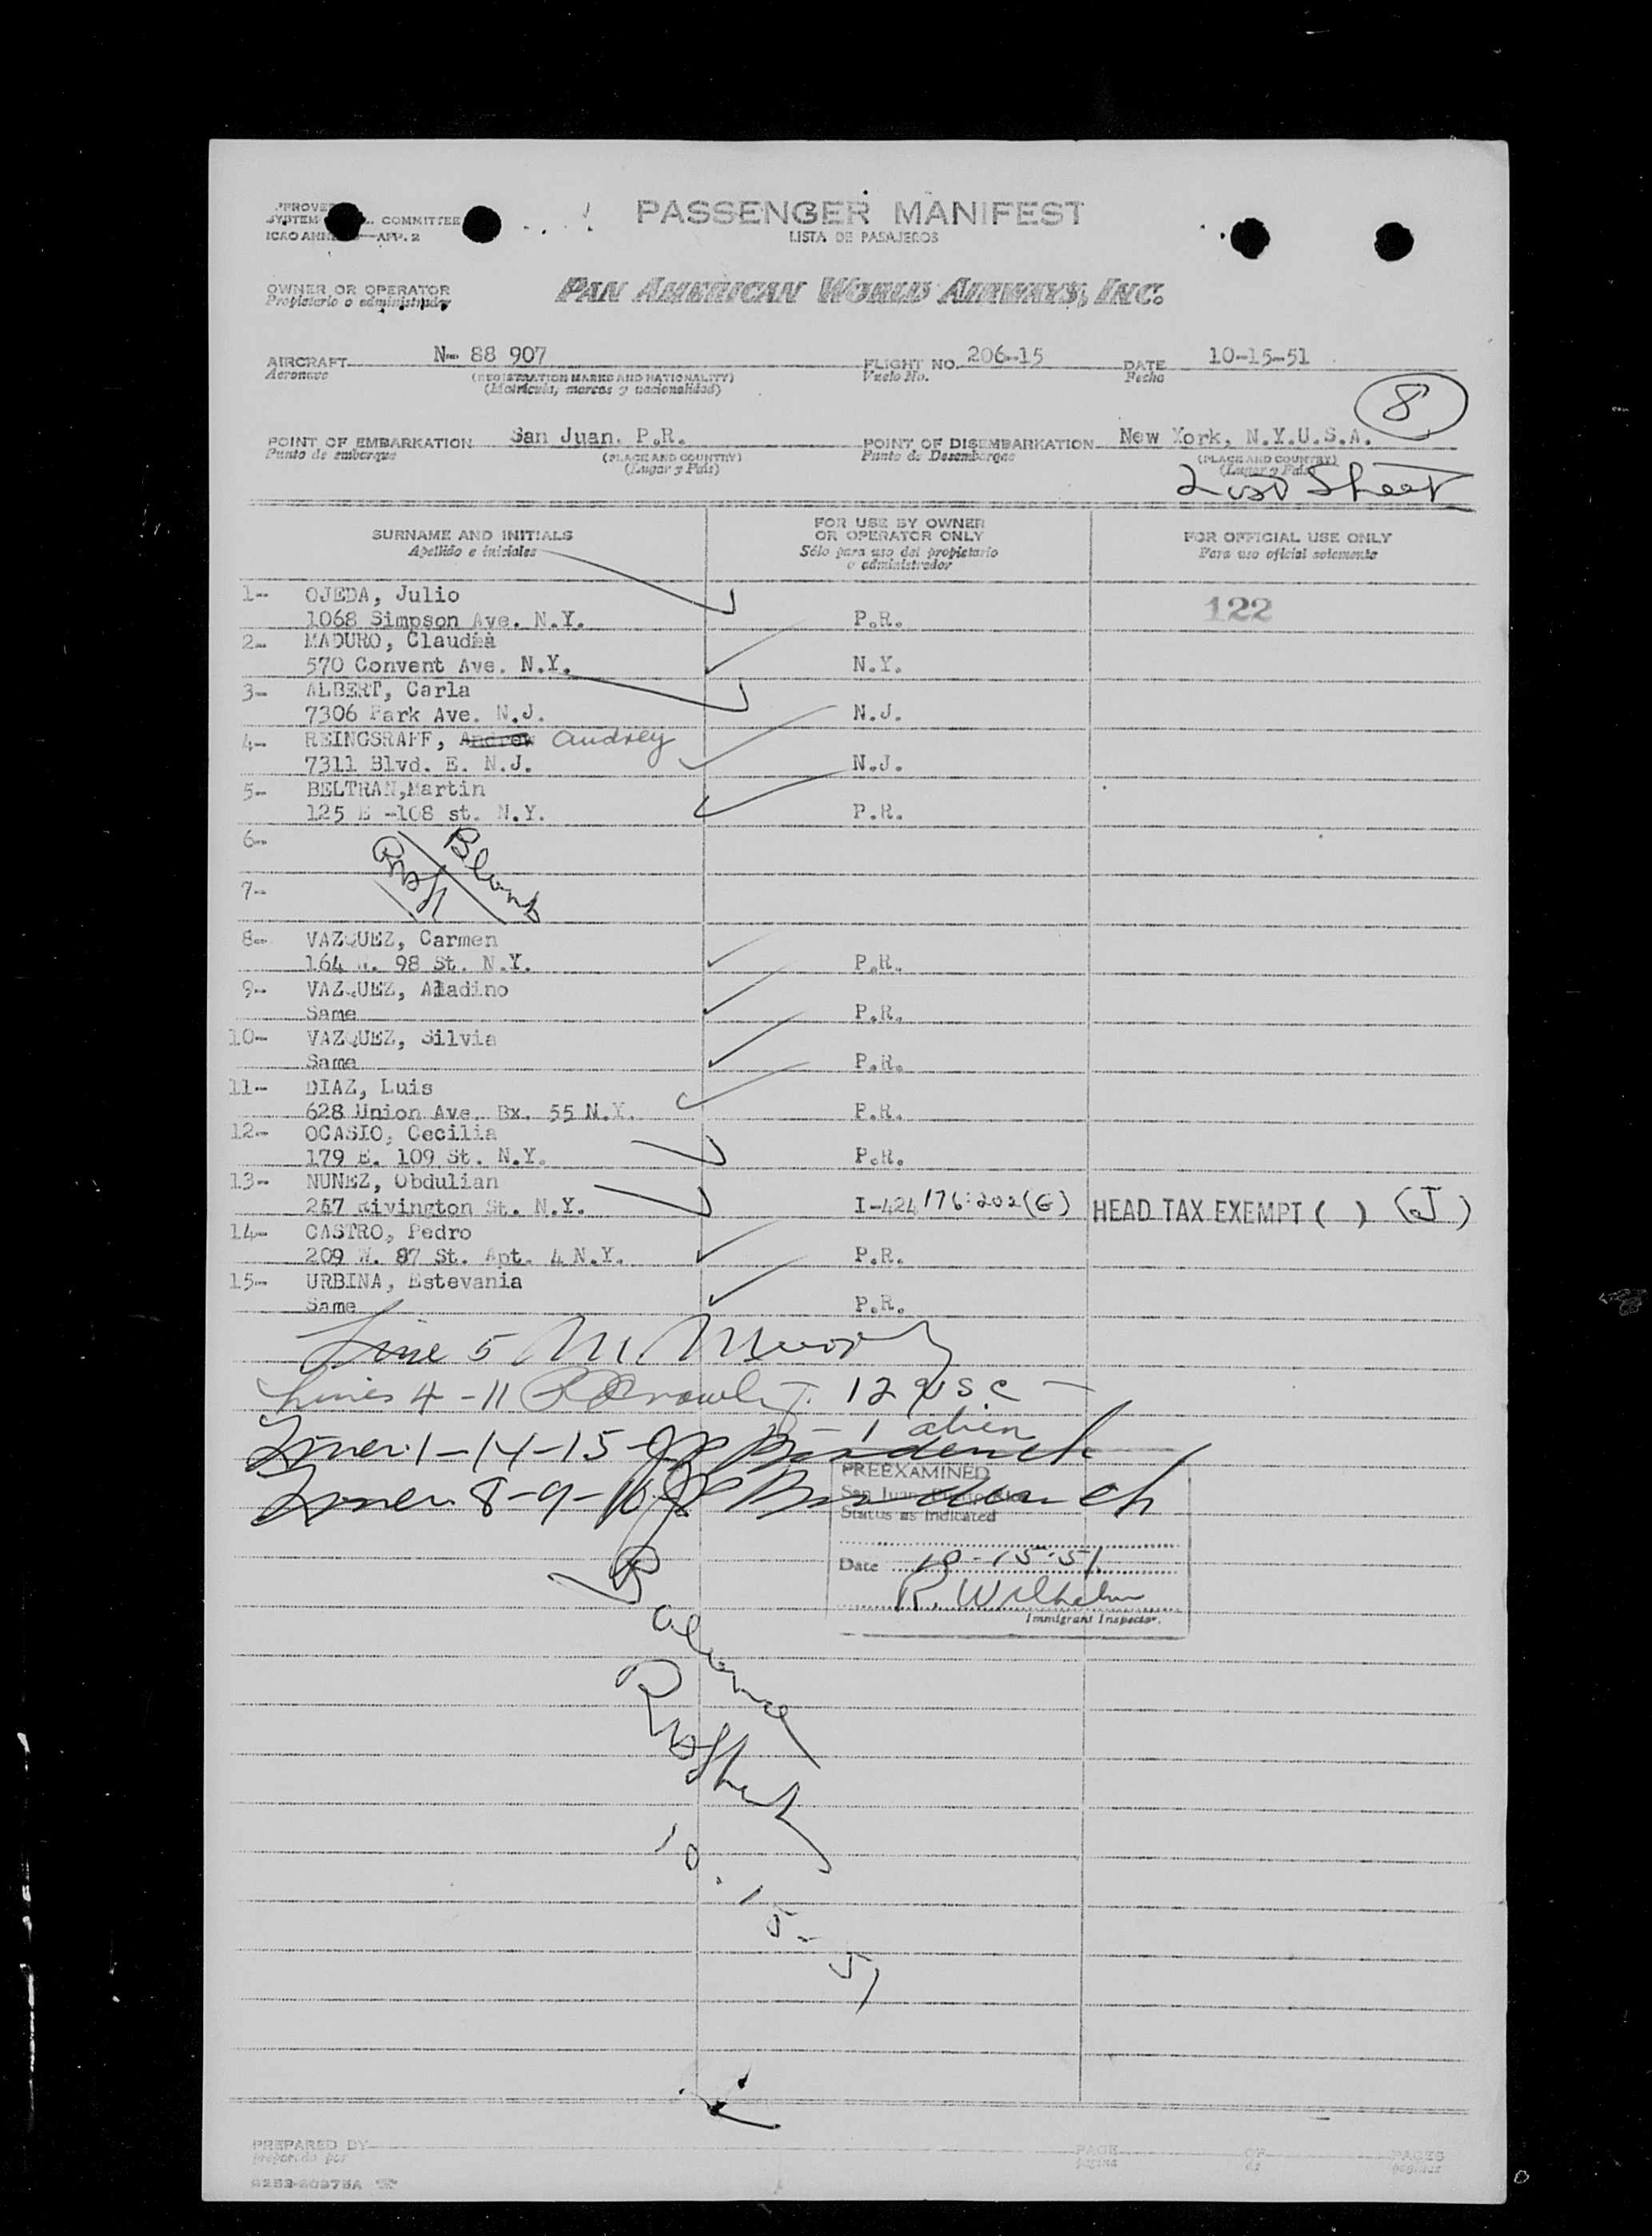 PASSENGER MANIFEST
LISTA DE PASAJEROS
COMMITTEE
APP. 2
OWNER OR OPERATOR
Propietario o administrador
PAN AMERICAN WORLD AIRWAYS, INC.
AIRCRAFT N- 88 907 FLIGHT NO. 206-15 DATE 10-15-51
Aeronave (REGISTRATION MARKS AND NATIONALITY) Vuelo No. Fecha
(Matrícula, marcas y nacionalidad)
8
POINT OF EMBARKATION San Juan. P.R. POINT OF DISEMBARKATION New York, N.Y.U.S.A.
Punto de embarque (PLACE AND COUNTRY) Punto de Desembarque (PLACE AND COUNTRY)
(Lugar y País) (Lugar y País)
Last Sheet
SURNAME AND INITIALS FOR USE BY OWNER OR OPERATOR ONLY FOR OFFICIAL USE ONLY
Apellido e iniciales Sólo para uso del propietario o administrador Para uso oficial solamente
1- OJEDA, Julio 122
1068 Simpson Ave. N.Y. P.R.
2- MADURO, Claudia
570 Convent Ave. N.Y. N.Y.
3- ALBERT, Carla
7306 Park Ave. N.J. N.J.
4- REINGSRAFF, Andrew Audrey
7311 Blvd. E. N.J. N.J.
5- BELTRAN,Martin
125 E -108 st. N.Y. P.R.
6- Blank
7-
8- VAZQUEZ, Carmen
164 W. 98 St. N.Y. P.R.
9- VAZQUEZ, Aladino
Same P.R.
10- VAZQUEZ, Silvia
Same P.R.
11- DIAZ, Luis
628 Union Ave. Bx. 55 N.Y. P.R.
12- OCASIO, Cecilia
179 E. 109 St. N.Y. P.R.
13- NUNEZ, Obdulian
267 Rivington St. N.Y. I-424 176:202(G) HEAD TAX EXEMPT ( ) (J)
14- CASTRO, Pedro
209 W. 87 St. Apt. 4 N.Y. P.R.
15- URBINA, Estevania
Same P.R.
Line 5 M.
Lines 4-11 12 USC
1 alien
Lines 1-14-15
Lines 8-9-10
PREEXAMINED
San Juan, Puerto Rico
Status as Indicated
Date 10-15-51
R. Wilhelm
Immigrant Inspector.
Balance
10-15-51
PREPARED BY PAGE OF PAGES
preparado por página de páginas